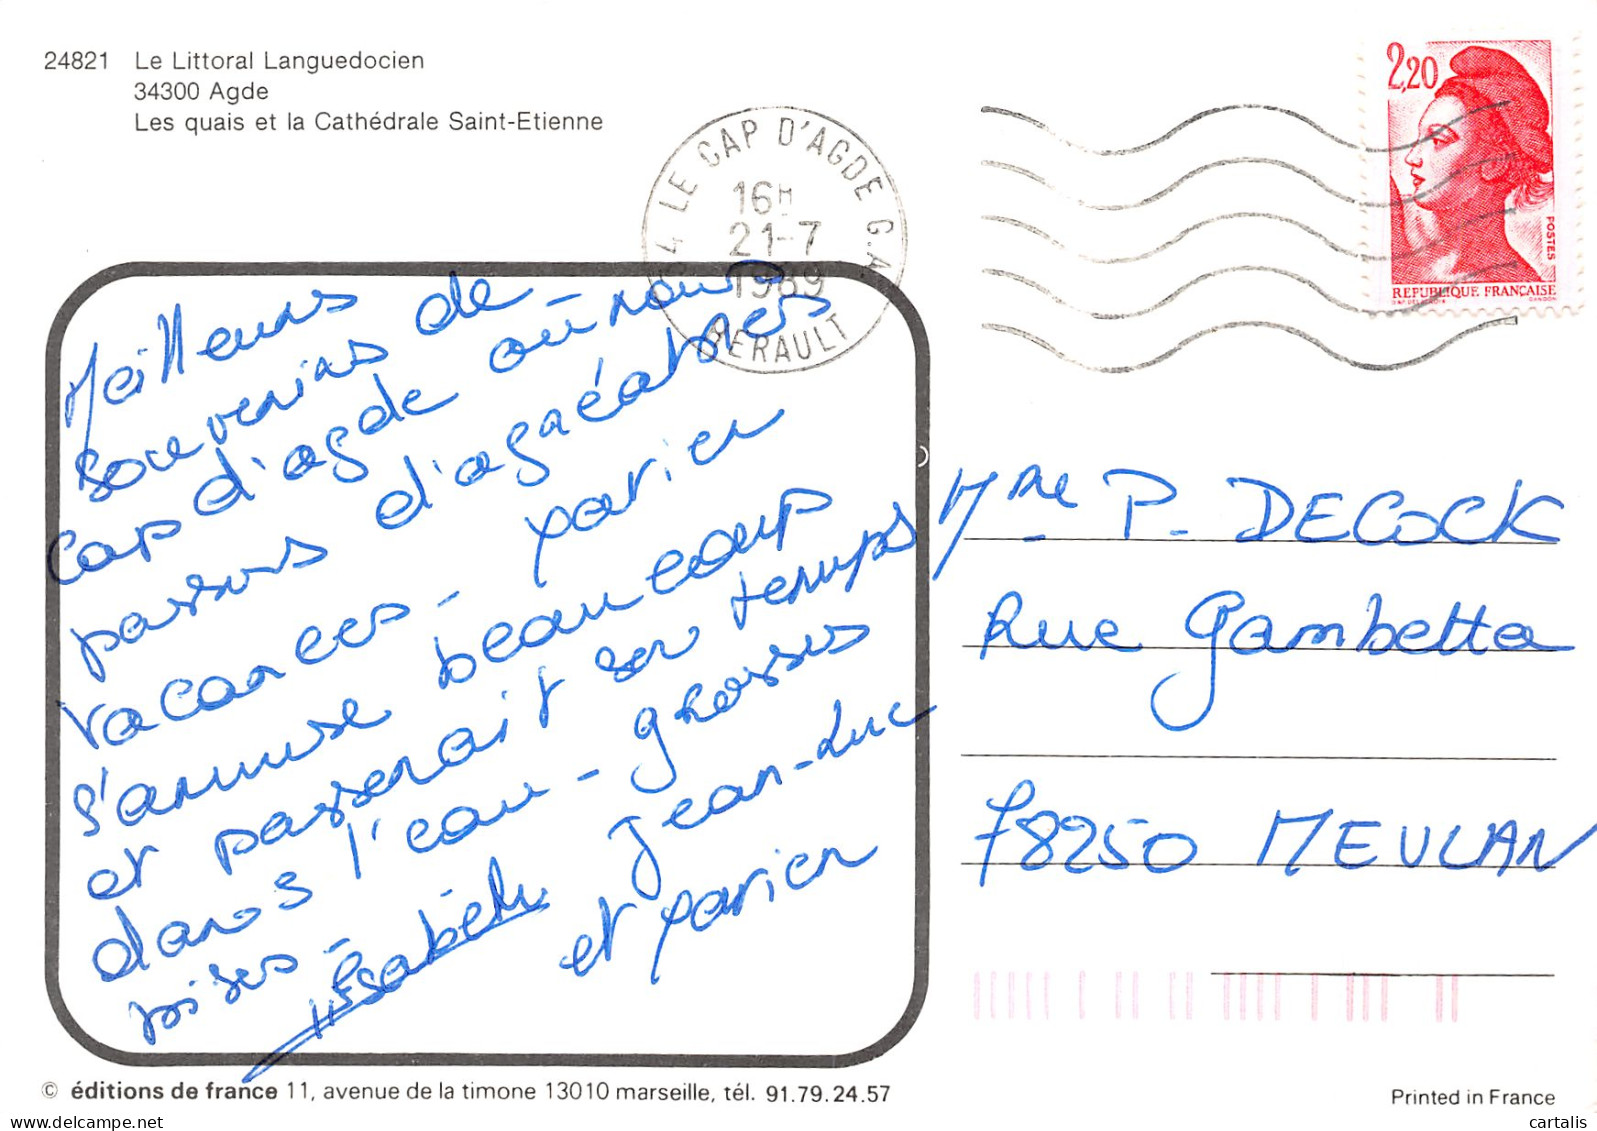 24821 Le Littoral Languedocien
34300 Agde
Les quais et la Cathédrale Saint-Etienne
34 LE CAP D'AGDE G.A.
16H
21-7
1989
HERAULT
2,20
POSTES
REPUBLIQUE FRANÇAISE
Meilleurs
souvenirs de
Cap d'agde où nous
passons d'agréables
vacances - xavier
s'amuse beaucoup
et passerait son temps
dans l'eau - grosses
bises -
Isabelle Jean-Luc
et xavier
Mme P. DECOCK
Rue Gambetta
78250 MEULAN
© éditions de france 11, avenue de la timone 13010 marseille, tél. 91.79.24.57
Printed in France
delcampe.net
cartalis